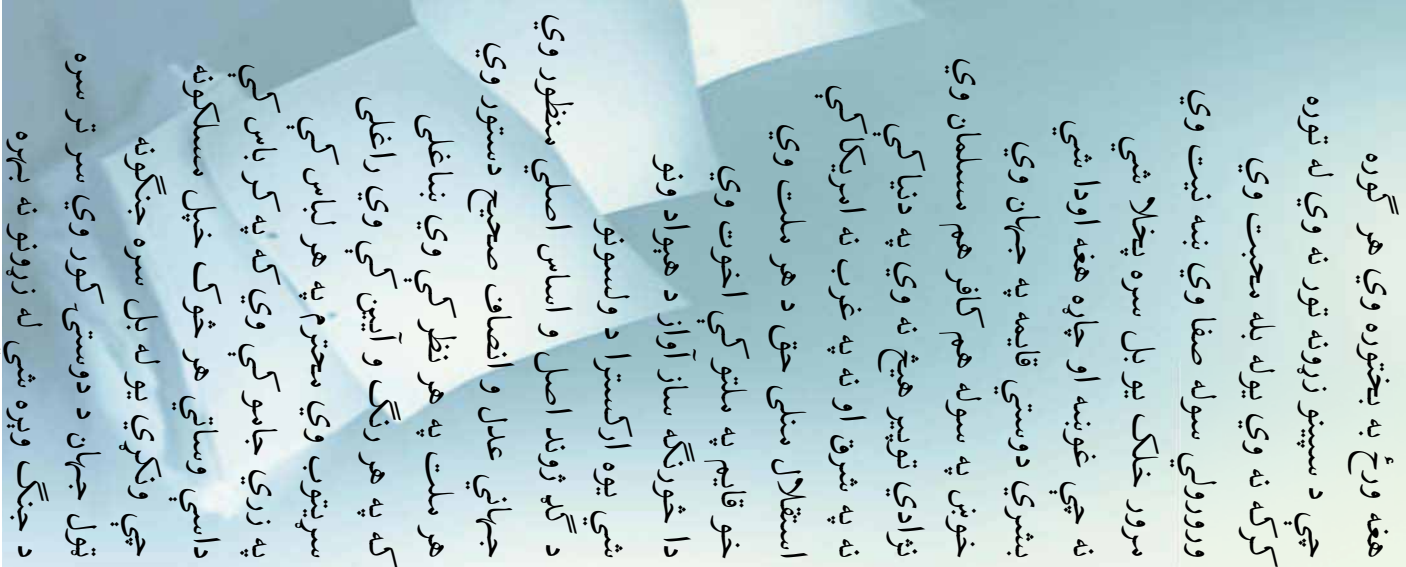 هغه ورځ به بختوره وي هر گوره
چې د سپينو زړونه تور نه وي له توره
کرکه نه وي يو له بله محبت وي
ورورولي سوله صفا وي ښه نيت وي
مرور خلک يو بل سره پخلا شي
نه چې غوښه او چاړه هغه اودا شي
بشري دوستي قايمه په جهان وي
خوښ په سوله هم کافر هم مسلمان وي
نژادي توپير هيڅ نه وي په دنيا کې
نه په شرق او نه په غرب نه امريکا کې
استقلال منلی حق د هر ملت وي
خو قايم په ملتو کې اخوت وي
دا څورنگه ساز آواز د هيواد ونو
شي يوه ارکسترا د ولسونو
د گډ ژوند اصل و اساس اصلي منظور وي
جهاني عدل و انصاف صحيح دستور وي
هر ملت په هر نظر کې وي ښاغلی
که په هر رنگ و آيين کې وي راغلی
سړيتوب وي محترم په هر لباس کې
په زري جامو کې وي که په کرباس کې
داسې وساتي هر څوک خپل مسلکونه
چې ونکړي يو له بل سره جنگونه
ټول جهان د دوستۍ کور وي سر تر سره
د جنگ ويره شي له زړونو نه بهره